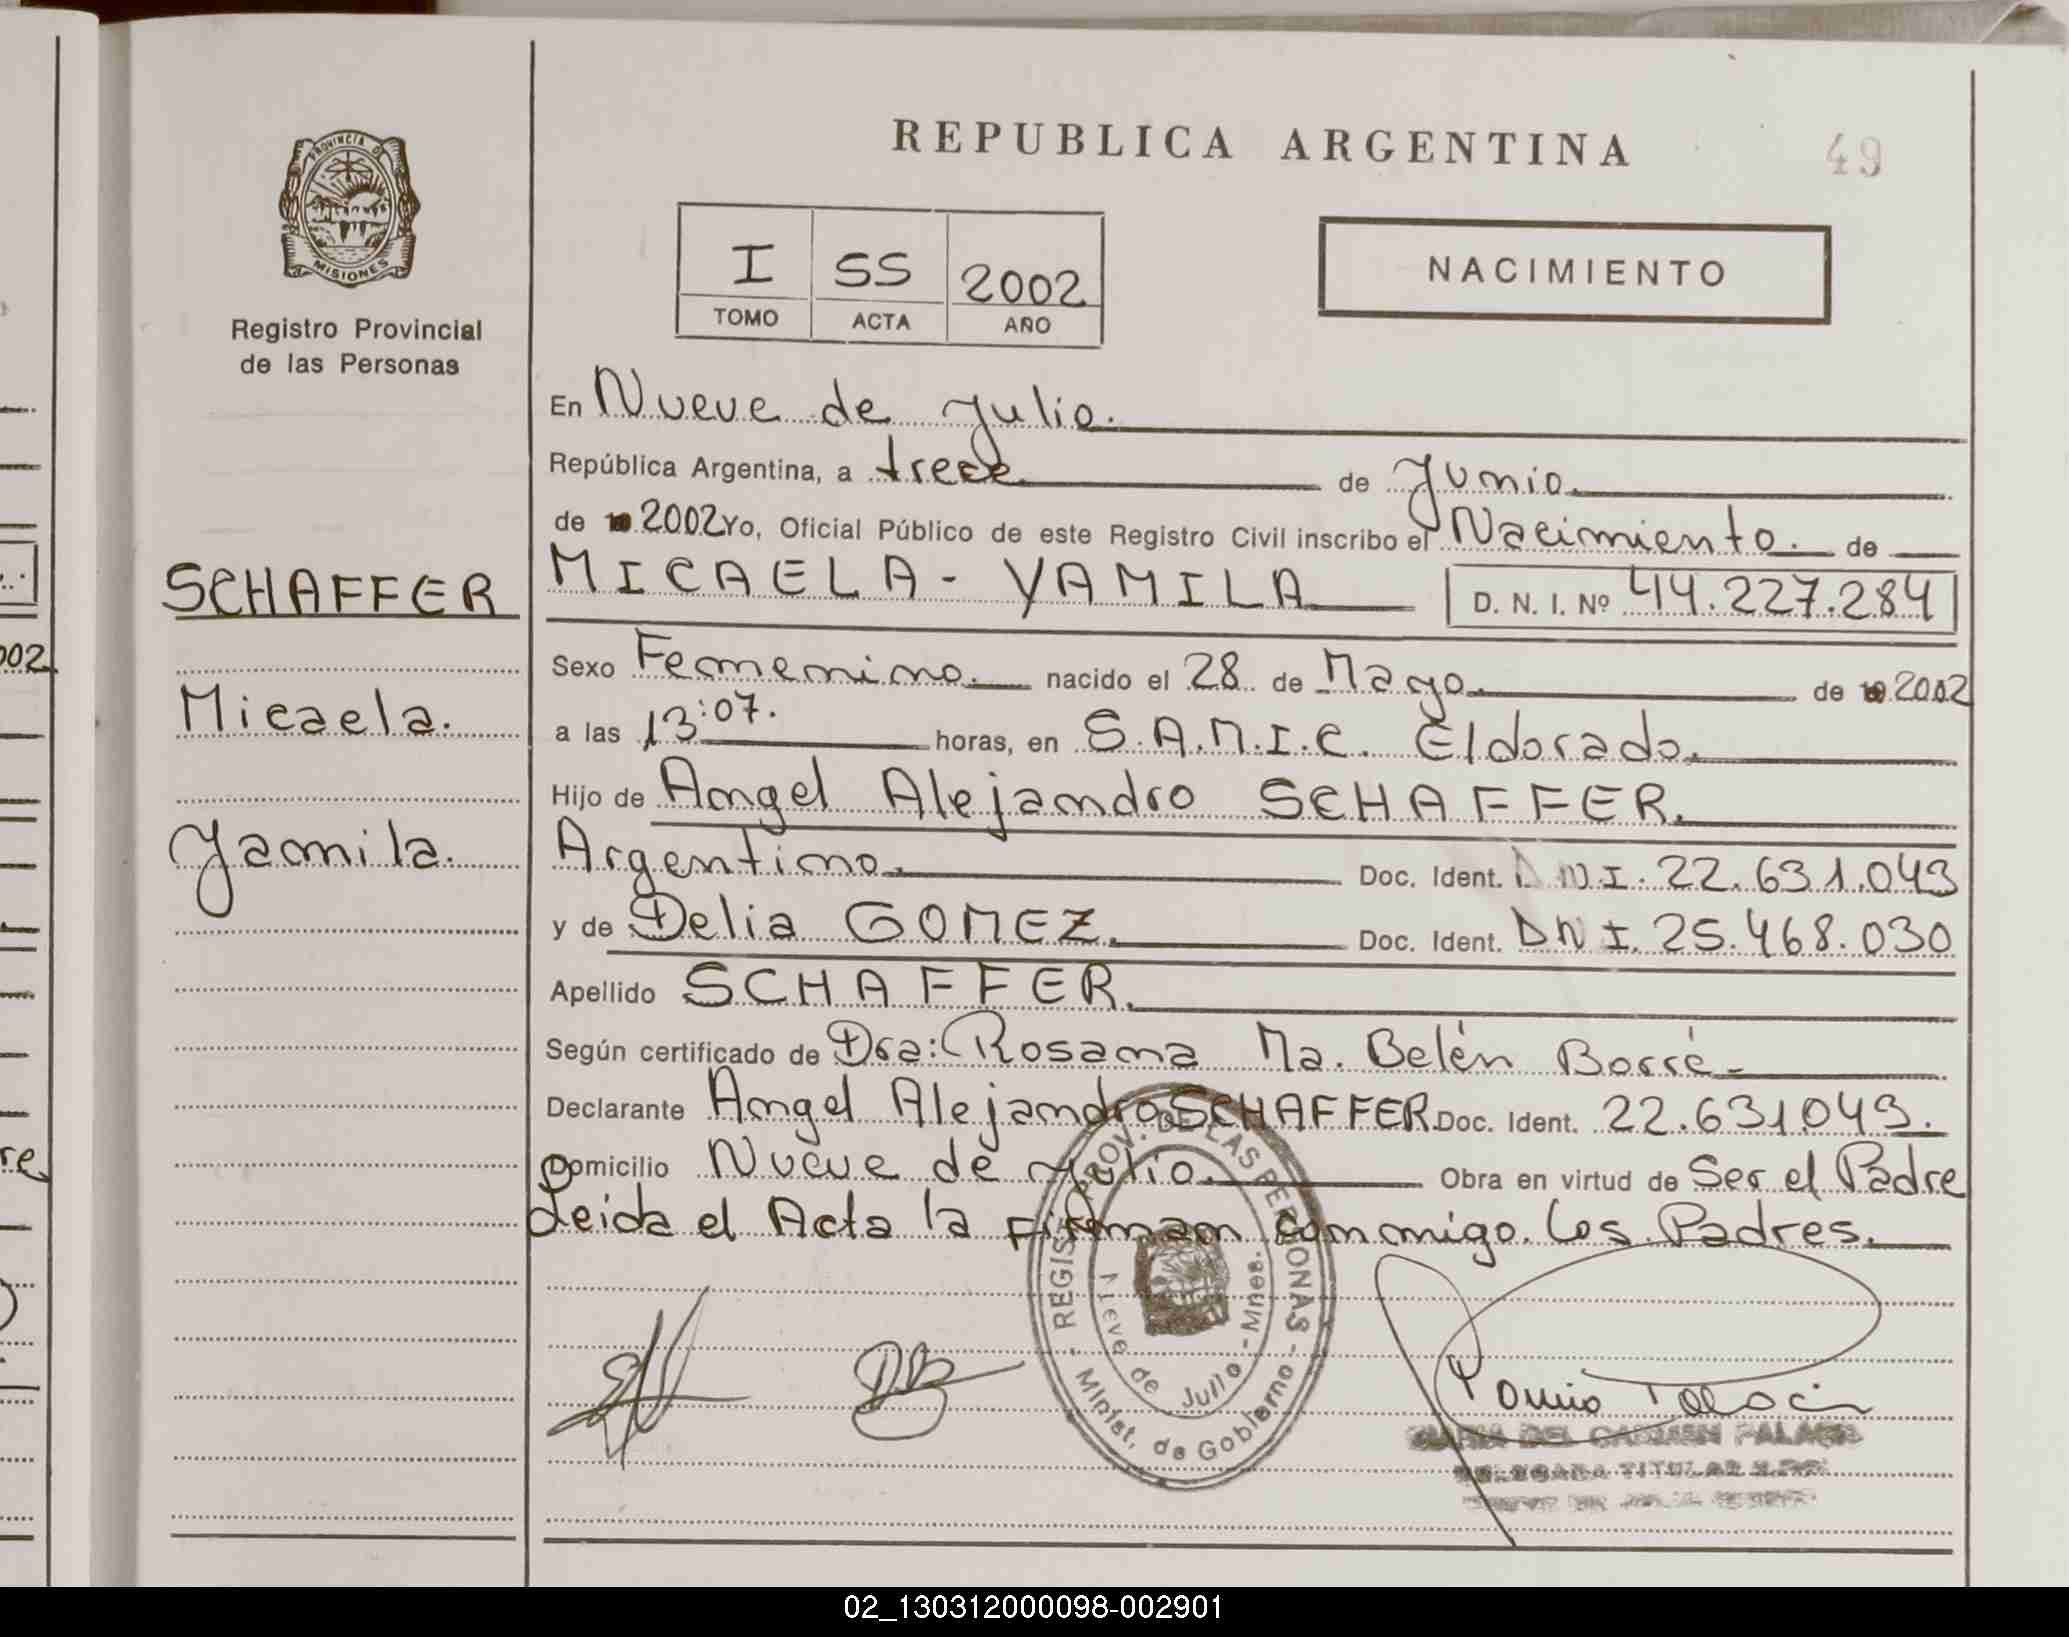 REPUBLICA ARGENTINA
49
PROVINCIA DE
MISIONES
Registro Provincial
de las Personas
I SS 2002
TOMO ACTA AÑO
NACIMIENTO
En Nueve de Julio.
República Argentina, a trece de Junio.
de 2002 Yo, Oficial Público de este Registro Civil inscribo el Nacimiento. de
SCHAFFER
MICAELA - YAMILA D. N. I. Nº 44.227.284
002
Sexo Femenino. nacido el 28 de Mayo de 2002
Micaela.
a las 13:07. horas, en S.A.M.I.C. Eldorado.
Hijo de Angel Alejandro SCHAFFER.
Yamila.
Argentino. Doc. Ident. DNI. 22.631.043
y de Delia GOMEZ. Doc. Ident. DNI. 25.468.030
Apellido SCHAFFER.
Según certificado de Dra: Rosana Ma. Belén Borré-
Declarante Angel Alejandro SCHAFFER Doc. Ident. 22.631.043.
re
Domicilio Nueve de Julio. Obra en virtud de Ser el Padre
Leida el Acta la Firman conmigo. Los Padres.
REGIST. PROV. DE LAS PERSONAS
Nieve de Julio - Mnes.
- Minist. de Gobierno -
MARIA DEL CARMEN
DELEGADA TITULAR
02_130312000098-002901